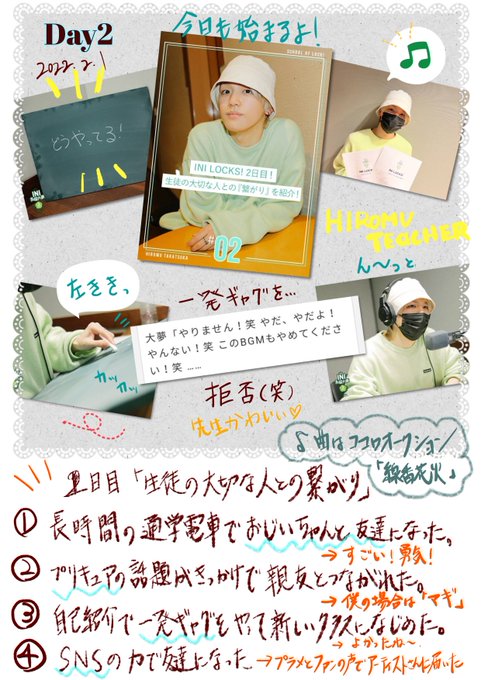 Day2
2022.2.1
今日も始まるよ!
SCHOOL OF LOCK!
どうやってる!
INI LOCKS! 2日目!
生徒の大切な人との『繋がり』を紹介!
#02
HIROMU TAKATSUKA
INI LOCKS!
HIROMU
TEACHER
ん〜っと
左ききっ
カッカッ
一発ギャグを…
大夢「やりません!笑 やだ、やだよ!
やんない!笑 このBGMもやめてくださ
い!笑 ……
拒否(笑)
先生かわいい♡
♪曲はココロオークション
「線香花火」
2日目「生徒の大切な人との繋がり」
① 長時間の通学電車でおじいちゃんと友達になった。
→すごい!勇気!
② プリキュアの話題がきっかけで親友とつながれた。
→僕の場合は「マギ」
③ 自己紹介で一発ギャグをやって新しいクラスになじめた。
→よかったね〜
④ SNSの力で友達になった→プラメとファンの声でアーティストさんに届いた